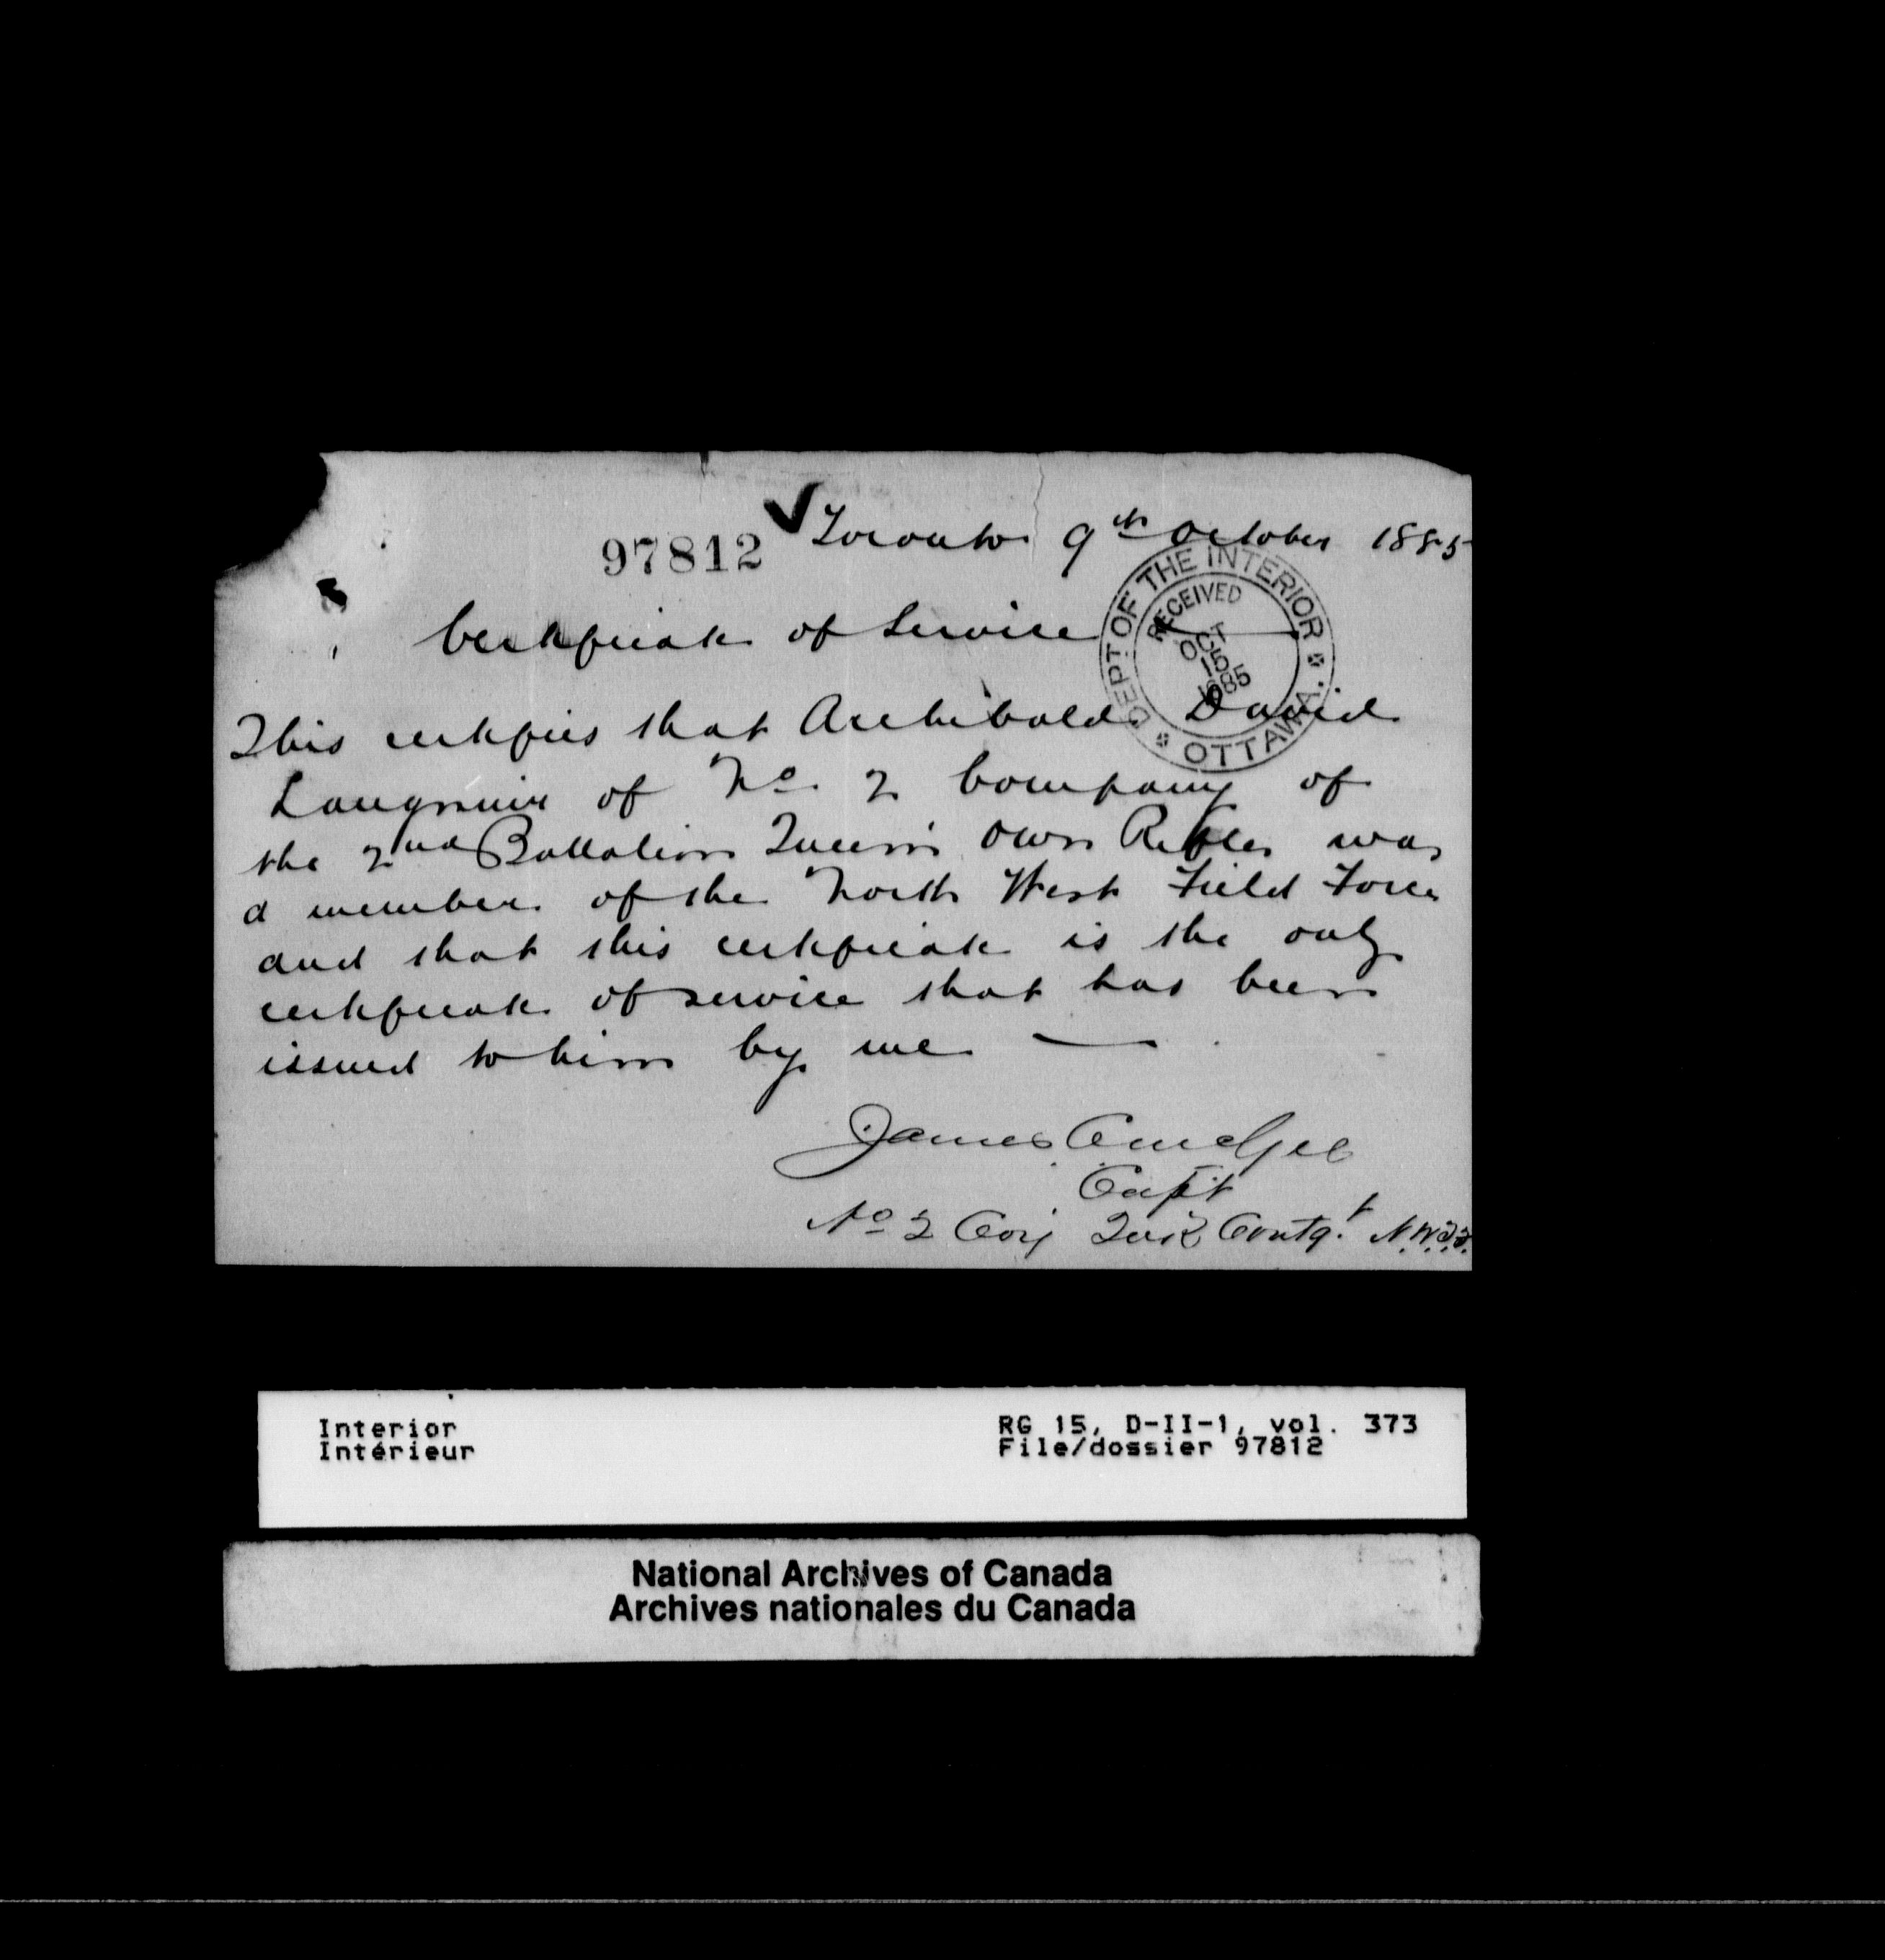 97812 ✓ Toronto 9th October 1885
DEPT. OF THE INTERIOR
RECEIVED
OCT
15
1885
OTTAWA.
Certificate of Service
This certifies that Archibald David
Langmuir of No. 2 Company of
the 2nd Battalion Queen's Own Rifles was
a member of the North West Field Force
and that this certificate is the only
certificate of service that has been
issued to him by me —
James
Capt
No 2 Coy QOR Contgt N.W.F.F.
Interior
Intérieur
RG 15, D-II-1, vol. 373
File/dossier 97812
National Archives of Canada
Archives nationales du Canada